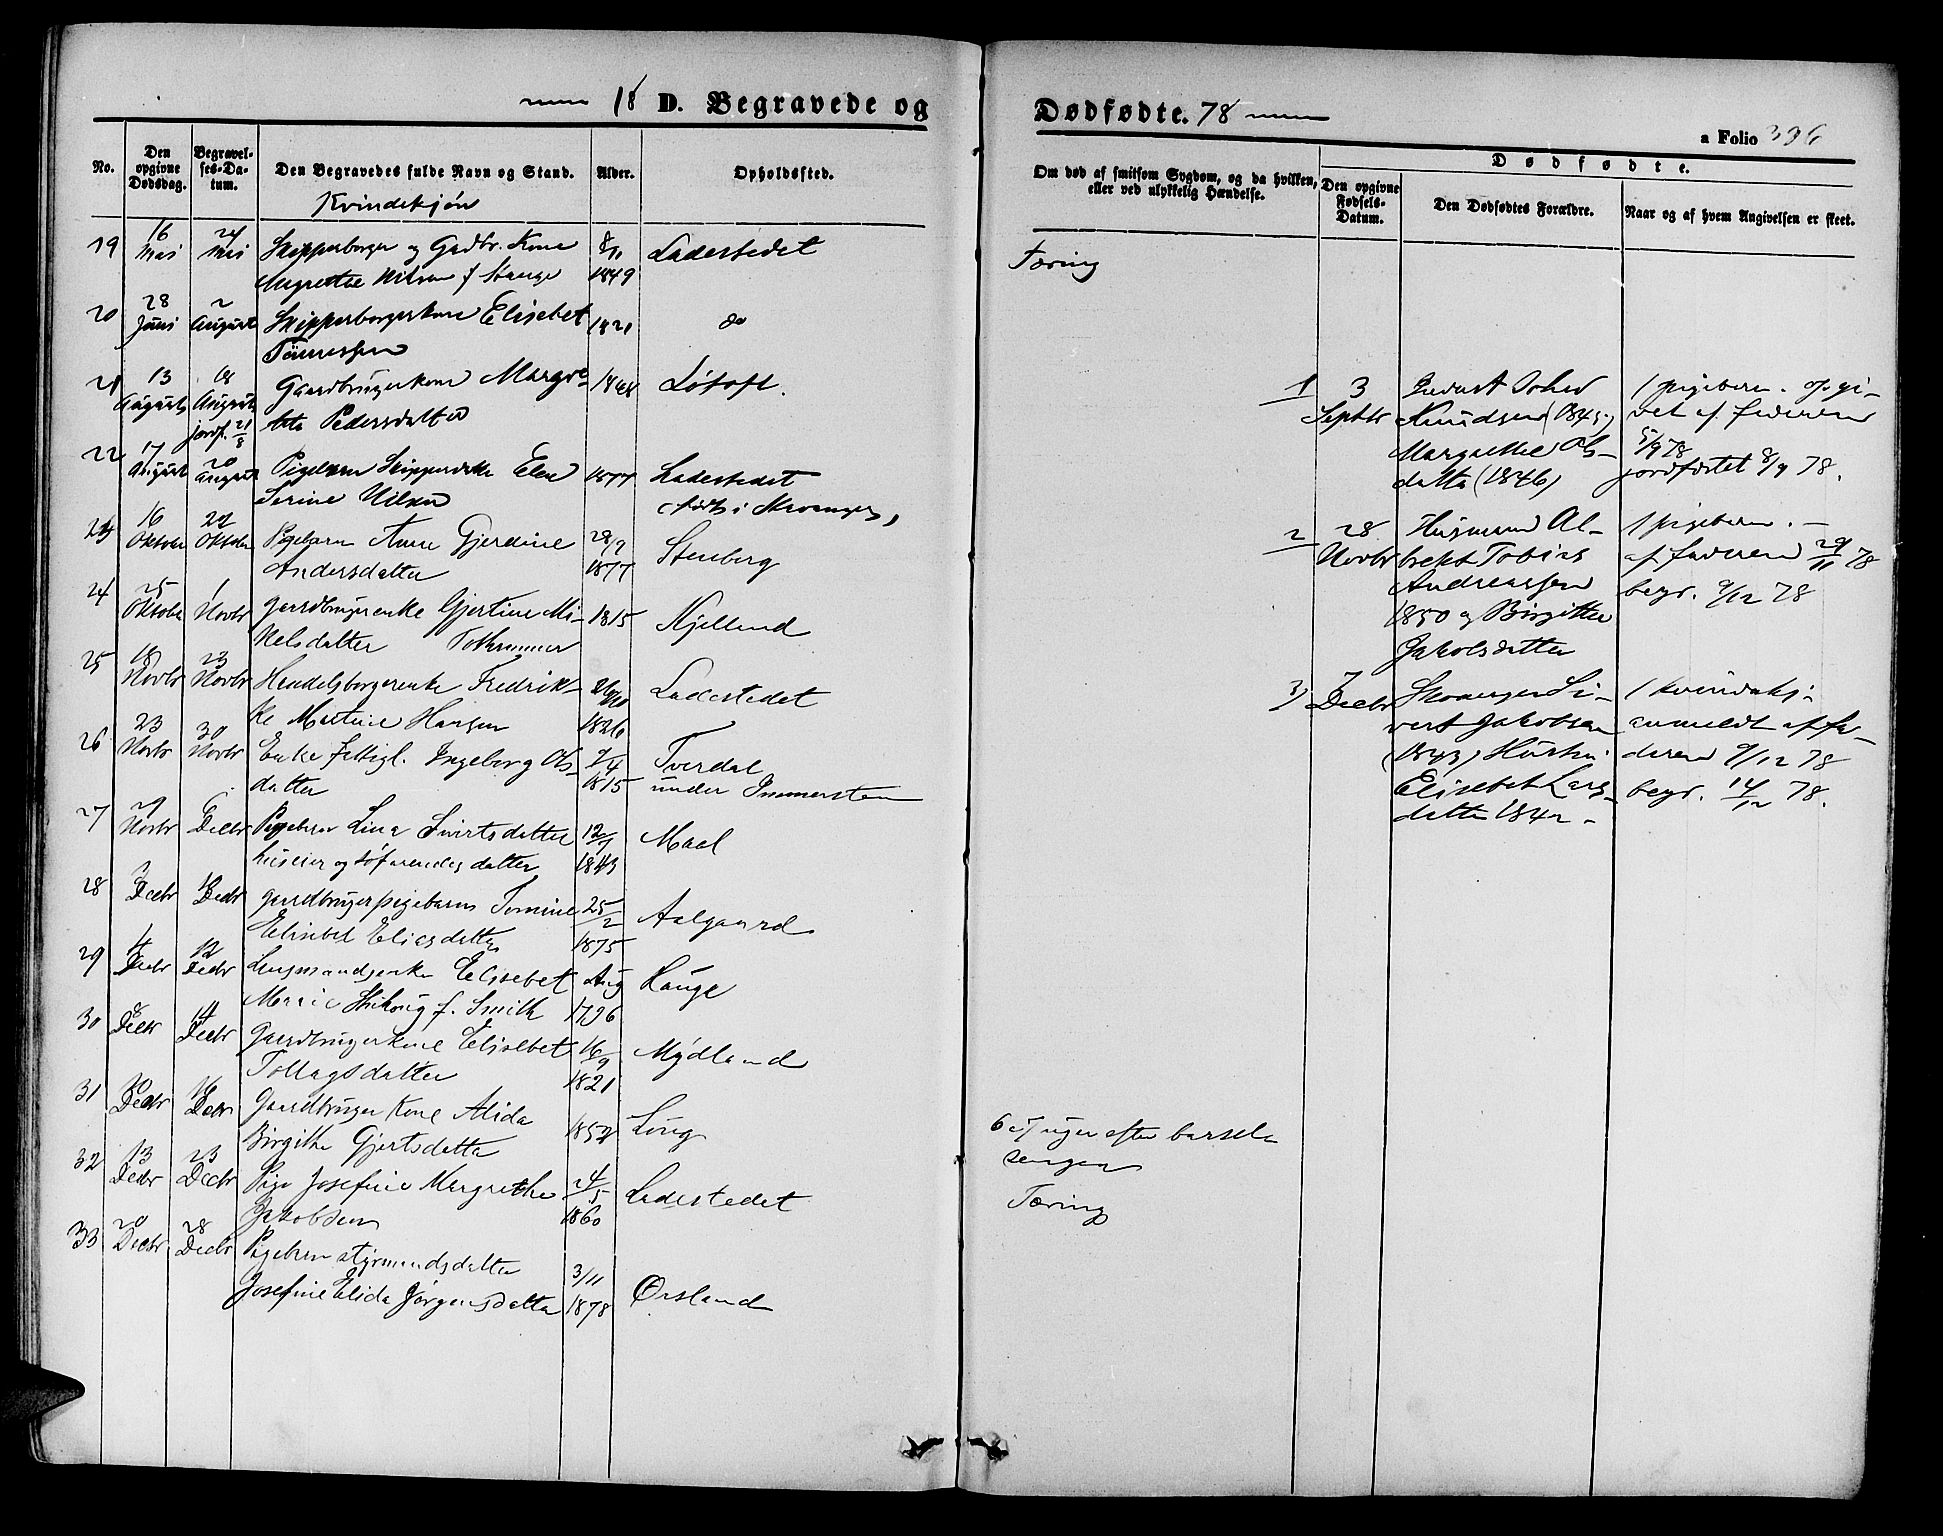 18 D. Begravede og
No.
Den opgivne Dødsdag.
Begravelses-Datum.
Den Begravedes fulde Navn og Stand.
Alder.
Opholdssted.
Kvindekjøn
19 16 Mai 24 Mai Skipperborger og Gadbr. Kone 8/11 Ladestedet
1849
20 28 Juni 2 August Skipperborgerkone Elisebet 1821 do
Tønnessen
21 13 August 18 August Gaardbrugerkone Margre- 1848
jordf. 21/8 tta Pedersdatter
22 17 August 20 August Pigebarn Elen 1877 Ladestedet
Serine Nilsen
23 16 Oktober Oktober Pigebarn Anne Gjerdine 28/9 Stenberg
Andersdatter 1877
24 25 Oktober 1 Novbr Gaardbrugerenke Gjertine Mi- 1815 Kjelland
kelsdatter
25 18 Novbr 23 Novbr Handelsborgerenke Fredrik- 26/10 Ladestedet
ke Martine Hansen 1826
26 23 Novbr 30 Novbr Enke fattigl. Ingeborg Ols- Tverdal
datter 1815 under
27 29 Novbr 6 Decbr Pigebarn Lina Sivertsdatter 12/7 Maal
huseier og søfarendes datter
28 Decbr Decbr Gaardbrugerpigebarn Tomine 25/2 Aalgaard
Elisebet Eliasdatter 1875
29 4 Decbr 12 Decbr Lensmandsenke Elisebet Aug Hauge
f. Smith 1796
30 8 Decbr 14 Decbr Gaardbrugerkone Elisebet 16/9 Mydland
Tollagsdatter 1821
31 10 Decbr 16 Decbr Gaardbruger Kone Alida
Birgithe Gjertsdatter
32 13 Decbr 23 Decbr Pige Josefine Margrethe 24/5 Ladestedet
Jakobsen 1860
33 20 Decbr 28 Decbr Pigebarn styrmandsdatter 3/11
Josefine Elida Jørgensdatter 1878 Ørsland
Dødfødte. 78
a Folio 336
Om død af smitsom Sygdom, og da hvilken, eller ved ulykkelig Hændelse.
Dødfødte.
Den opgivne Fødsels-Datum.
Den Dødfødtes Forældre.
Naar og af hvem Angivelsen er skeet.
Tæring
1 3 Septbr
Knudsen (1845)
Margrethe Ols-
datter (1846)
1 pigebarn. opgi-
vet af faderen
5/9 78
jordfæstet 8/9 78.
2 28 Novbr
Husmand Al-
brekt Tobias
Andreassen
1850 og Birgitte
Jakobsdatter
1 pigebarn. –
af faderen 29/11 78
begr. 78
3 7 Decbr
Skomager Si-
vert Jakobsen
(1843) Hustru
Elisebet Lars-
datter 1842 –
1 kvindekj.
anmeldt af fa-
deren 9/12 78
begr. 14/12 78.
6 a 7 uger efter barsel-
sengen
Tæring